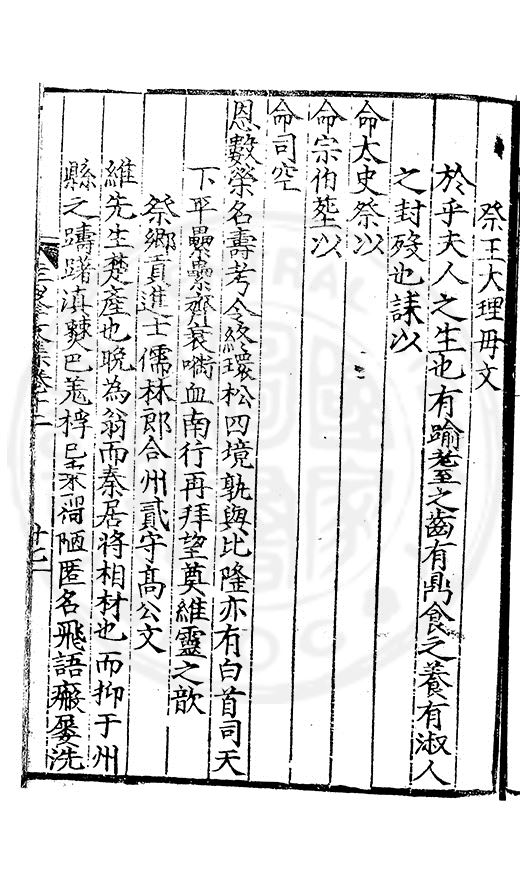 祭王大理母文
於乎夫人之生也有踰耋之齒有鼎食之養有淑人
之封歿也誄以
命太史祭以
命宗伯塟以
命司空
恩數榮名壽考令終環松四境孰與比隆亦有白首司天
下平纍纍齊衰啣血南行再拜望奠維靈之歆
祭鄉貢進士儒林郎合州貳守高公文
維先生楚產也晚為翁而秦居將相材也而抑于州
縣之躊躇滇僰巴羗桴 陋匿名飛語瘢 洗